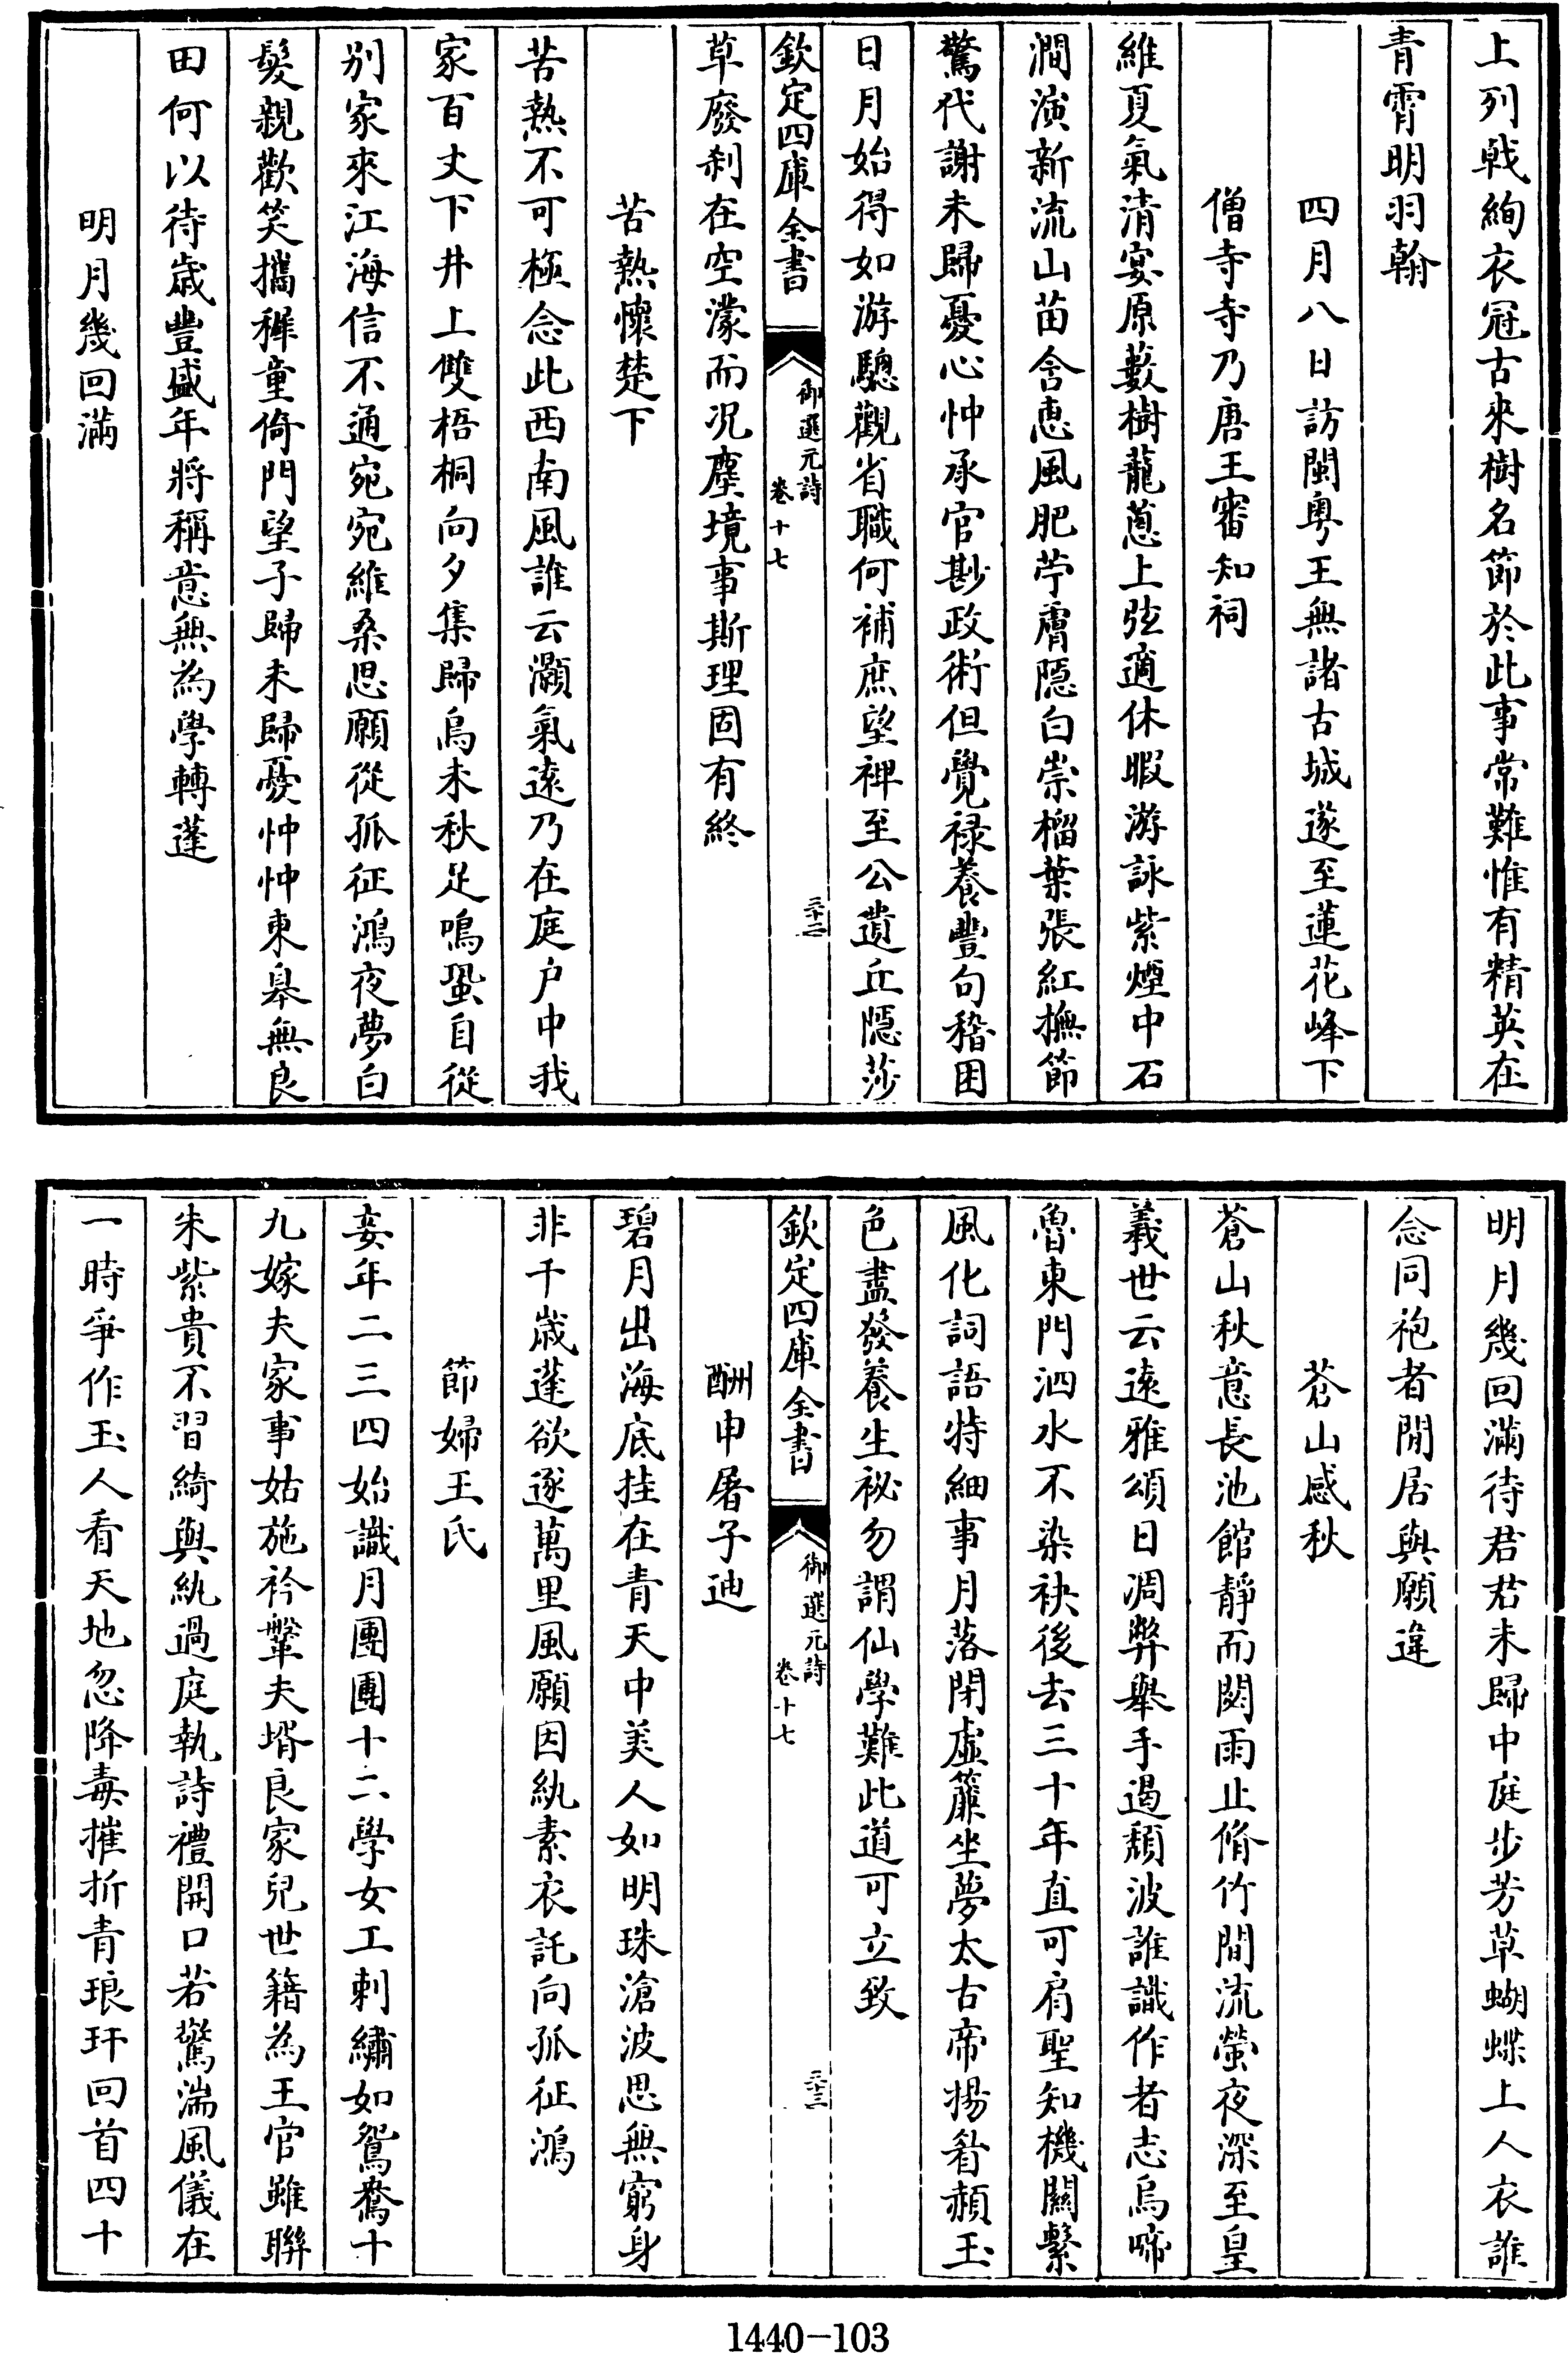 上列戟絢衣冠古來樹名節於此事常難惟有精英在
青霄明羽翰
四月八日訪閩粵王無諸古城遂至蓮花峰下
僧寺寺乃唐王審知祠
維夏氣清宴原藪樹蘢蔥上弦適休暇游詠紫煙中石
澗演新流山苗含惠風肥苧膚隠白崇榴葉張紅撫節
驚代謝未歸憂心忡承官尠政術但覺祿養豐句稽困
日月始得如游驄觀省職何補庶望裨至公遺丘隱莎
欽定四庫全書
御選元詩
卷十七
三十二
草廢刹在空濛而况塵境事斯理固有終
苦熱懷楚下
苦熱不可極念此西南風誰云灝氣逺乃在庭户中我
家百丈下井上雙梧桐向夕集歸烏未秋足鳴蛩自從
别家來江海信不通宛宛維桑思願從孤征鴻夜夢白
髮親歡笑攜穉童倚門望子歸未歸憂忡忡東臯無良
田何以待歲豐盛年將稱意無為學轉蓬
明月幾回滿
明月幾回滿待君君未歸中庭步芳草蝴蝶上人衣誰
念同袍者閒居與願違
蒼山感秋
蒼山秋意長池館靜而閟雨止脩竹間流螢夜深至皇
羲世云逺雅頌日凋弊舉手遏頽波誰識作者志烏啼
魯東門泗水不染袂後去三十年直可肩聖知機關繫
風化詞語特細事月落閉虛簾坐夢太古帝揚眷頳玉
色盡發養生祕勿謂仙學難此道可立致
欽定四庫全書
御選元詩
卷十七
三十三
酬申屠子迪
碧月出海底挂在青天中美人如明珠滄波思無窮身
非千歲蓬欲逐萬里風願因紈素衣託向孤征鴻
節婦王氏
妾年二三四始識月團團十二學女工刺繡如鴛鴦十
九嫁夫家事姑施衿鞶夫壻良家兒世籍為王官雖聯
朱紫貴不習綺與紈過庭執詩禮開口若驚湍風儀在
一時爭作玉人看天地忽降毒摧折青琅玕回首四十
1440-103